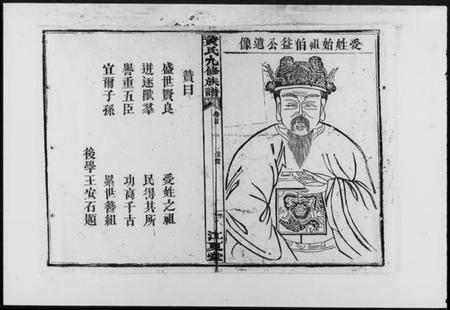 受姓始祖伯益公遺像
黃氏九修族譜 卷首 江夏堂
贊曰
盛世賢良 受姓之祖
迸逐獸羣 民得其所
譽重五臣 功高千古
宜爾子孫 纍世簪組
後學王安石題